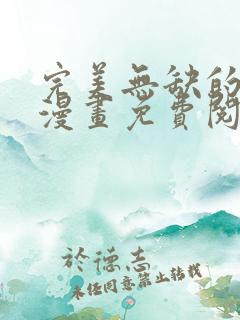 完美無缺的
漫畫免費閱
於德志
未经同意禁止转载